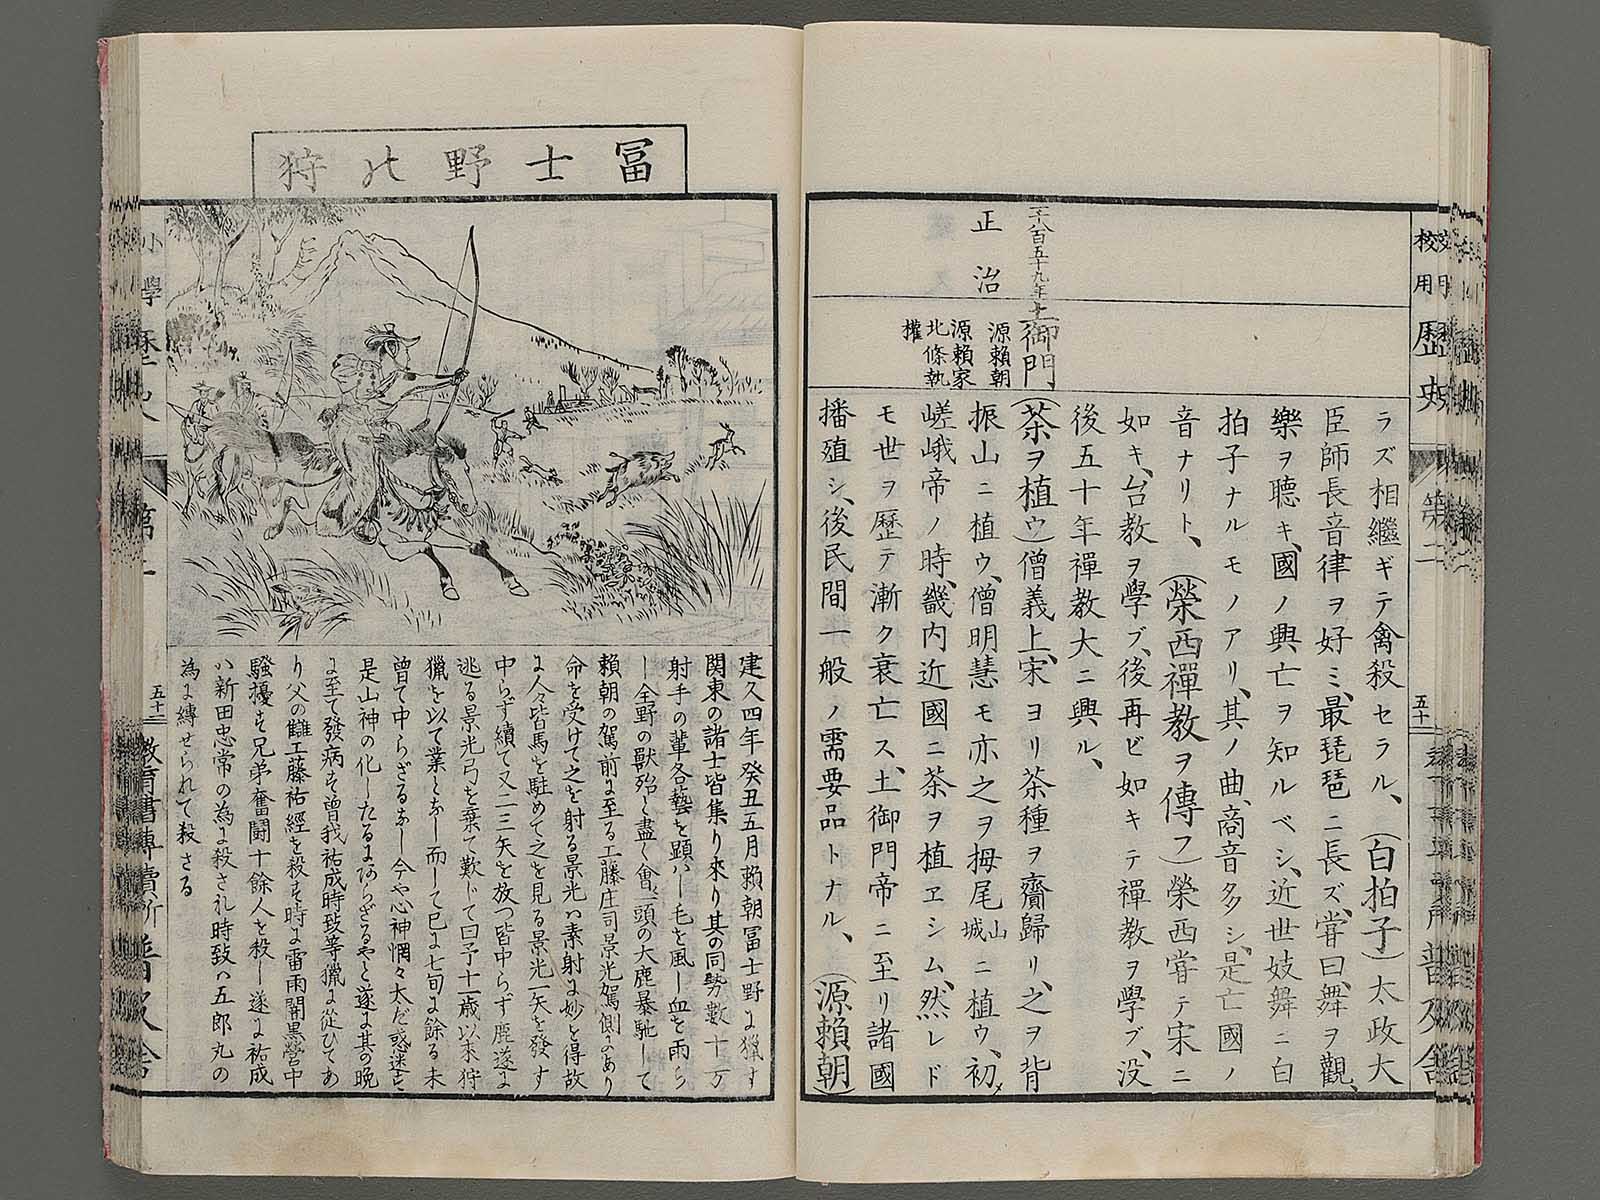 校用歴史
第二
五十一
普及舎
千八百五十九年
正治
土御門
源頼朝
源頼家
北條執
權
ラズ相繼ギテ禽殺セラル、(白拍子)太政大
臣師長音律ヲ好ミ、最琵琶ニ長ズ、嘗曰、舞ヲ觀、
樂ヲ聴キ、國ノ興亡ヲ知ルベシ、近世妓舞ニ白
拍子ナルモノアリ、其ノ曲、商音多シ、是亡國ノ
音ナリト、(榮西禪教ヲ傳フ)榮西嘗テ宋ニ
如キ、台教ヲ學ブ、後再ビ如キテ禪教ヲ學ブ、没
後五十年禪教大ニ興ル、
(茶ヲ植ウ)僧義上、宋ヨリ茶種ヲ齎歸リ、之ヲ背
振山ニ植ウ、僧明慧モ亦之ヲ栂尾山城ニ植ウ、初メ
嵯峨帝ノ時、畿内近國ニ茶ヲ植ヱシム、然レド
モ世ヲ歴テ漸ク衰亡ス、土御門帝ニ至リ諸國
播殖シ、後民間一般ノ需要品トナル、(源頼朝)
冨士野の狩
建久四年癸丑五月頼朝冨士野に獵す
関東の諸士皆集り來り其の同勢數十万
射手の輩各藝を顕はし毛を風し血を雨ら
し全野の獣殆ど盡く會一頭の大鹿暴馳して
頼朝の駕前に至る工藤庄司景光駕側にあり
命を受けて之を射る景光は素射に妙を得故
に人々皆馬を駐めて之を見る景光一矢を發す
中らず續て又二三矢を放つ皆中らず鹿遂に
逃る景光弓を棄て歎じて曰予十一歳以来狩
獵を以て業となし而して已に七旬に餘る未
曾て中らざるなし今や心神惘々太だ惑迷す
是山神の化したるにあらざるやと遂に其の晩
に至て發病す曾我祐成時致等獵に從ひてあ
り父の讎工藤祐經を殺す時に雷雨開黒營中
騒擾す兄弟奮闘十餘人を殺し遂に祐成
は新田忠常の為に殺され時致は五郎丸の
為に縛せられて殺さる
小學
第二
五十二
教育書専賣所
普及舎